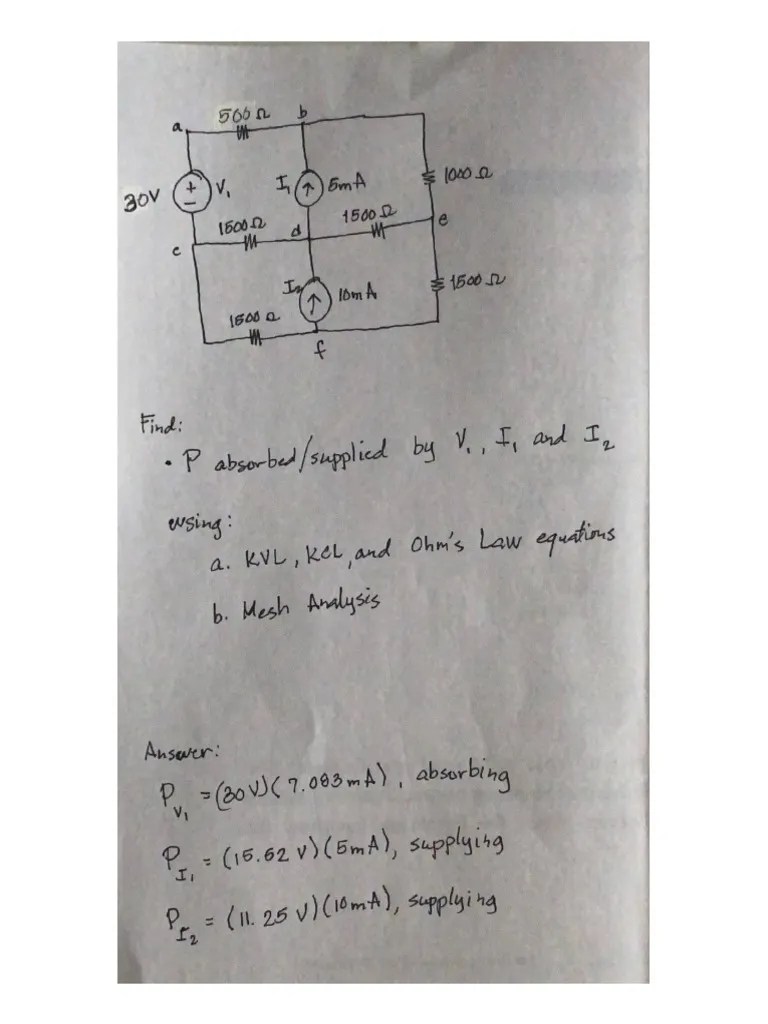 500Ω b
a
30V + - V₁ I₁ ↑ 5mA 1000Ω
1500Ω d 1500Ω e
c
I₂ ↑ 10mA 1500Ω
1500Ω
f
Find:
• P absorbed/supplied by V₁, I₁ and I₂
using:
a. KVL, KCL, and Ohm's Law equations
b. Mesh Analysis
Answer:
P_V₁ = (30V)(7.083mA), absorbing
P_I₁ = (15.62 V)(5mA), supplying
P_I₂ = (11.25 V)(10mA), supplying